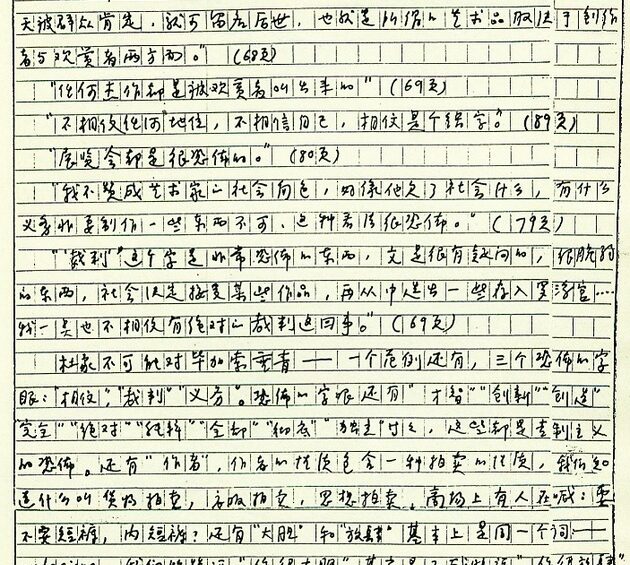 天被群众肯定，就可留在后世，也就是所谓的艺术品取决于创作
者与欢赏者两方面。”（68页）
“任何杰作都是被欢赏者叫出来的”（69页）
“不相仪任何”地位，不相信自己，相仪是个错字。”（89页）
“展览会都是很恐怖的。”（80页）
“我不赞成艺术家的社会角色，好像他欠了社会什么，有什么
义务非要制作一些东西不可，这种看法很恐怖。”（79页）
“‘裁判’这个字是非常恐怖的东西，又是很有疑问的，很脆弱
的东西，社会决定接受某些作品，再从中选出一些存入罗浮宫……
我一点也不相仪有绝对的裁判这回事。”（69页）
杜象不可能对毕加索垂青——一个范例还有，三个恐怖的字
眼：“相仪”，“裁判”“义务”。恐怖的字眼还有“才智”“创新”“创造”
“完全”“绝对”“纯粹”“全部”“彻底”“独立”，这些都是专制主义
的恐怖。还有“作者”，作者的性质包含一种拍卖的性质，我们知
道什么叫货物拍卖，房版拍卖，思想拍卖，商场上有人在喊：要
不要短裤，内短裤？还有“大胆”和“放肆”基本上是同一个词——